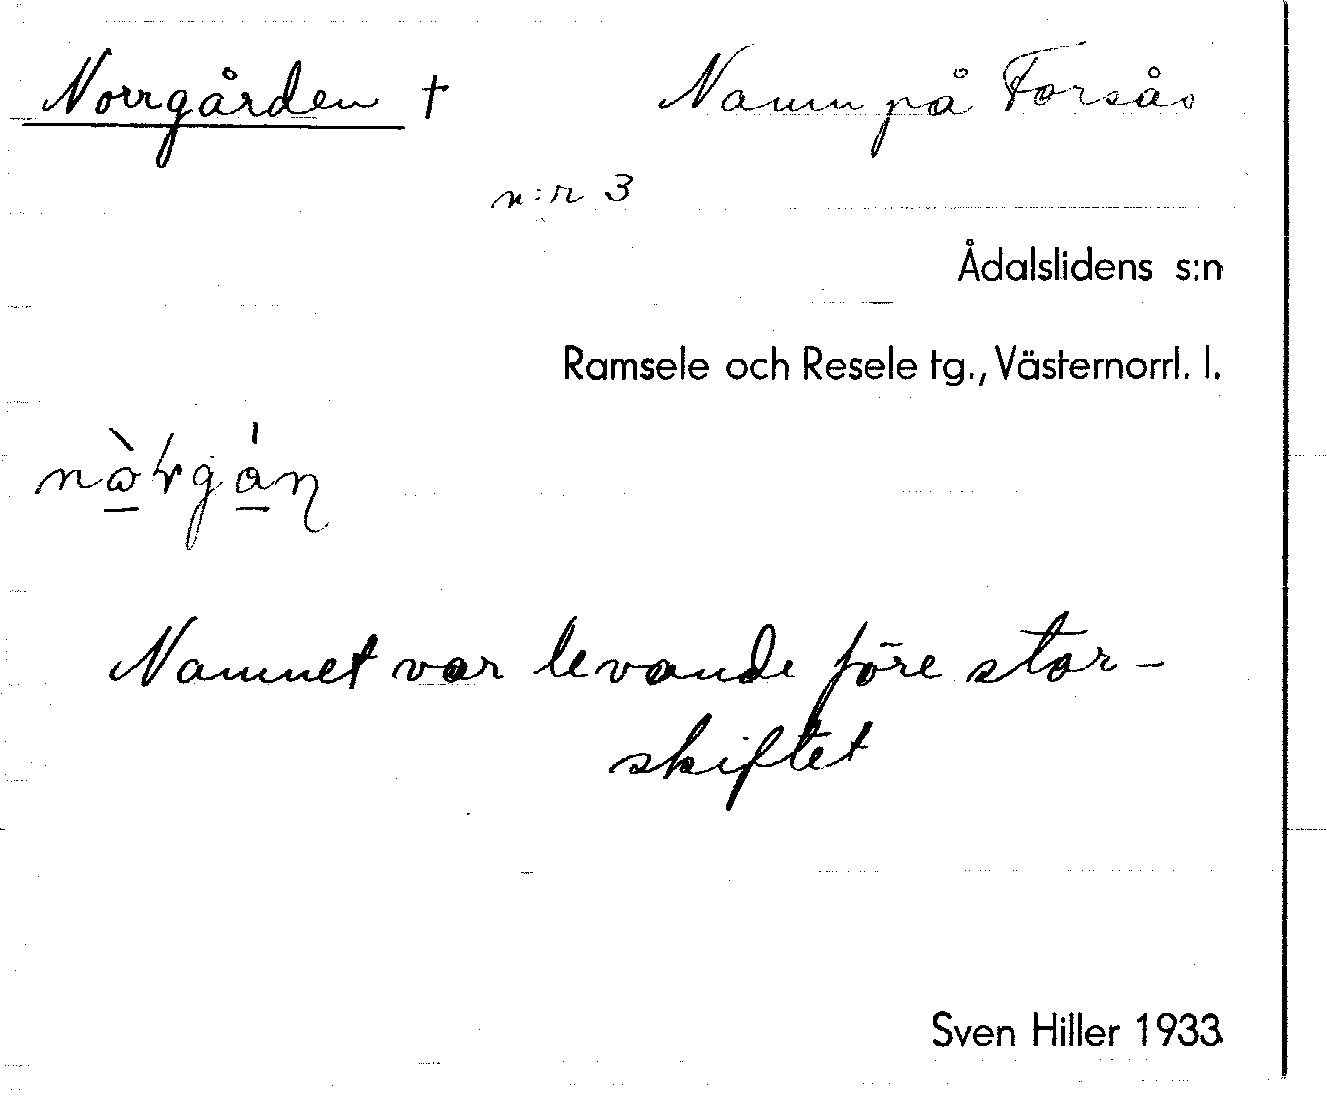 Norrgården † Namn på Forsås
n:r 3
Ådalslidens s:n
Ramsele och Resele tg., Västernorrl. l.
Namnet var levande före stor-
skiftet
Sven Hiller 1933